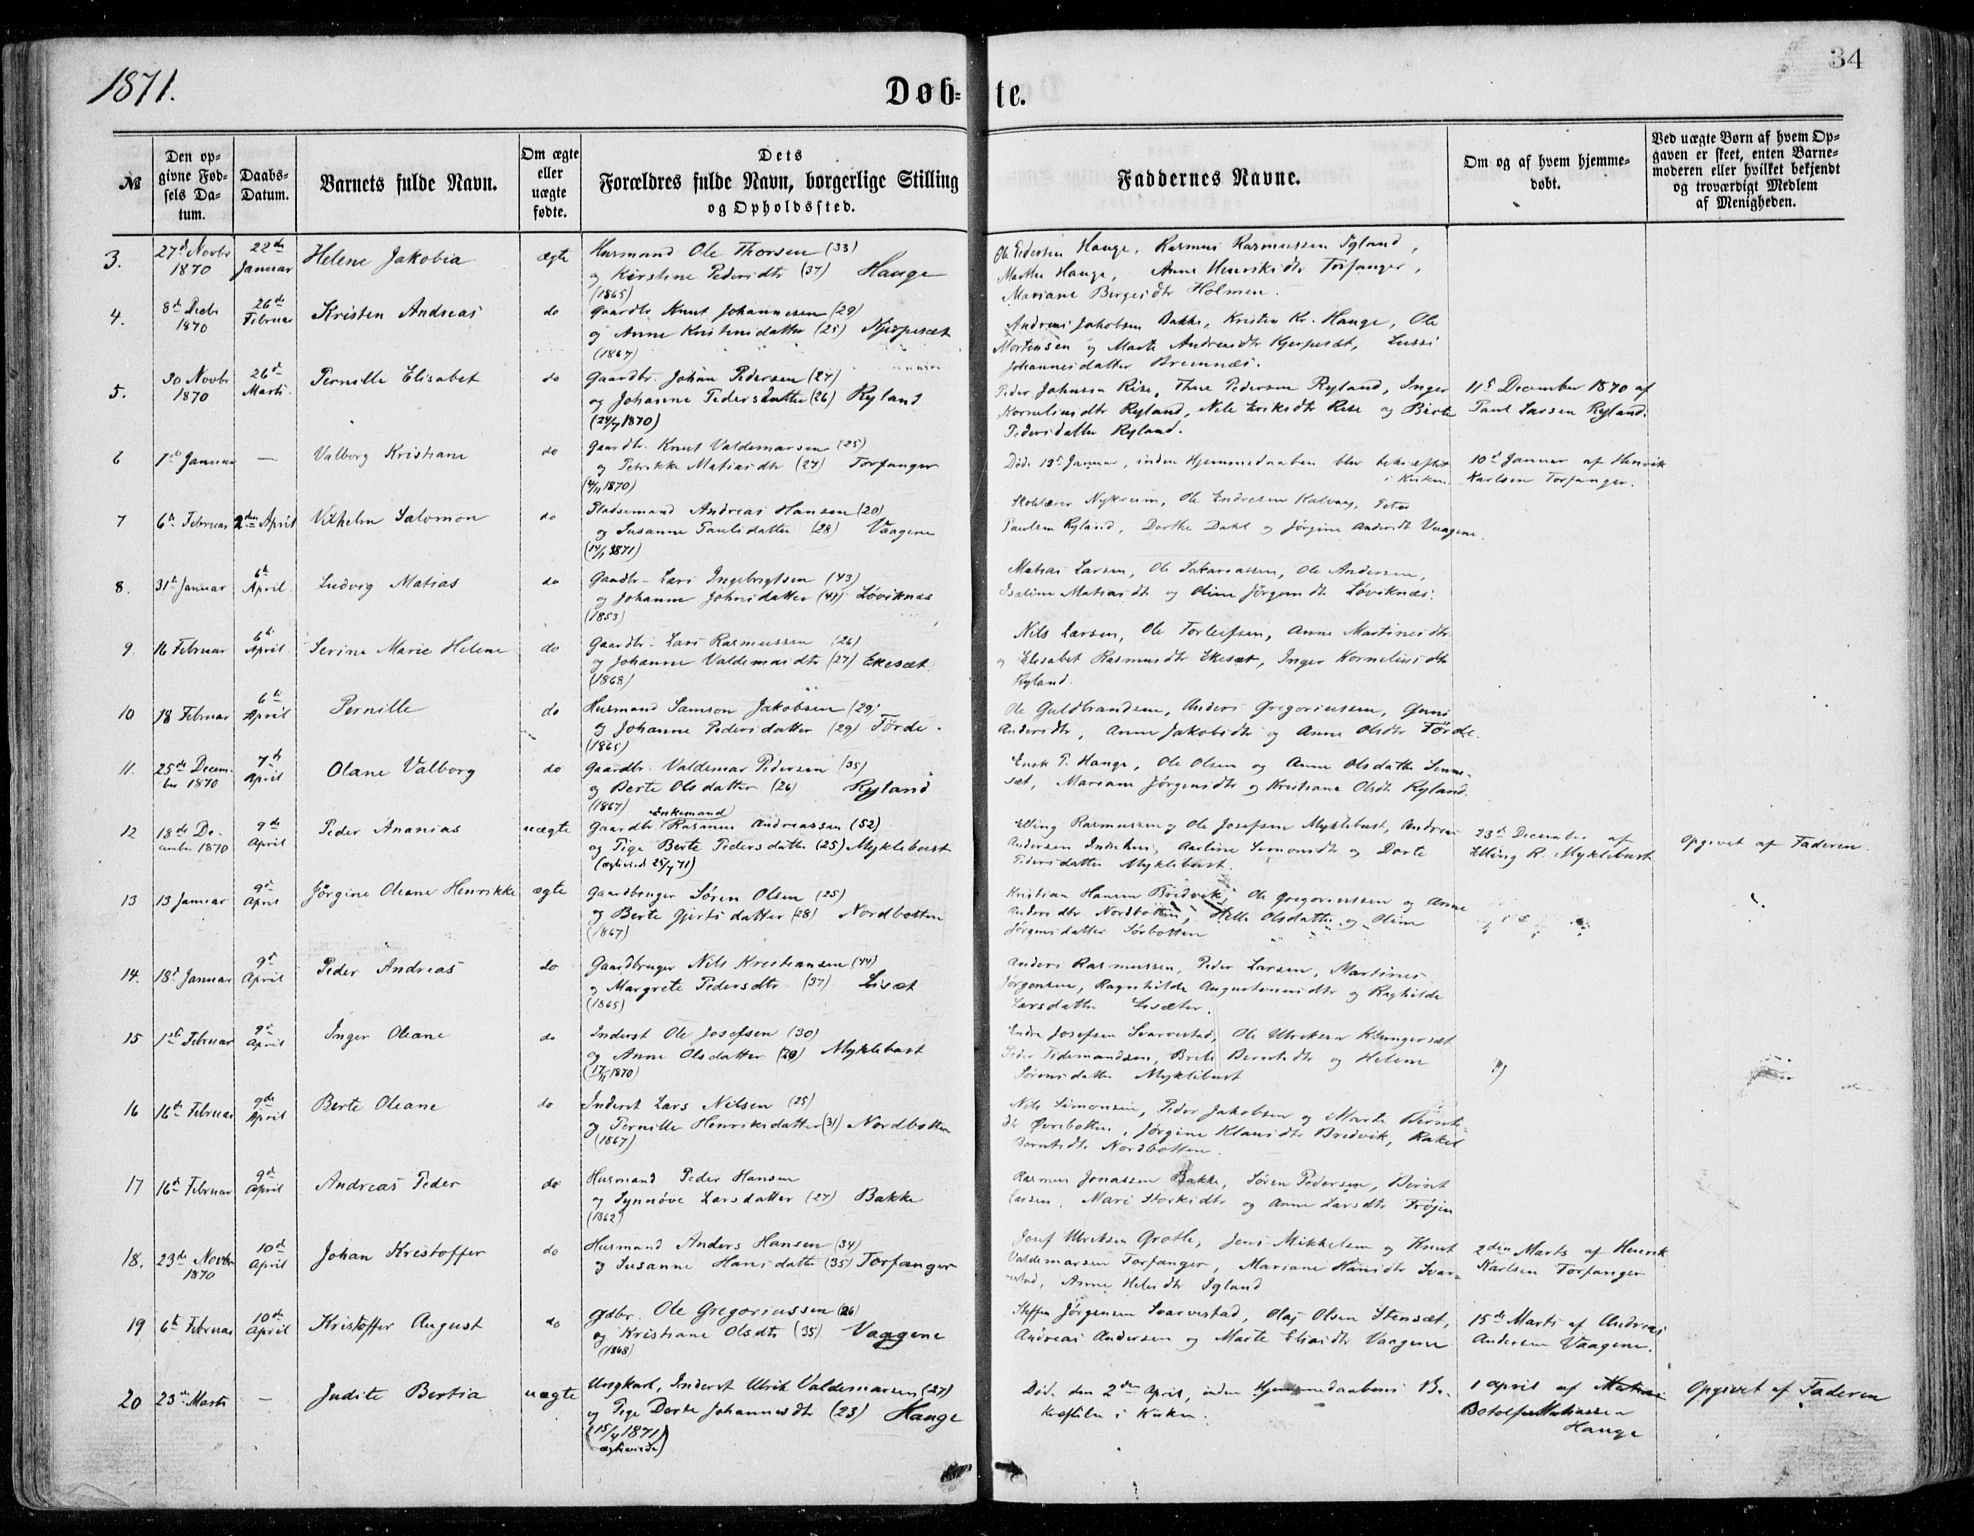 1871.
Døb-te.
34
№
Den op-
givne Fød-
sels Da-
tum.
Daabs-
Datum.
Barnets fulde Navn.
Om ægte
eller
uægte
fødte.
Dets
Forældres fulde Navn, borgerlige Stilling
og Opholdssted.
Faddernes Navne.
Om og af hvem hjemme-
døbt.
Ved uægte Børn af hvem Op-
gaven er skeet, enten Barne-
moderen eller hvilket bekjendt
og troværdigt Medlem
af Menigheden.
3.
27d Novbr
1870
22de
Januar
Helene Jakobia
ægte
Husmand Ole Thorsen (33)
og Kirstine Pedersdtr (37) Hauge
(1865)
Ole Pedersen Hauge, Rasmus Rasmussen Igland,
Marthe Hauge, Anne Henriksdtr Torfanger,
Mariane Bergesdtr Holmen.
4.
8de Decbr
1870
26de
Februar
Kristen Andreas
do
Gaardbr. Knut Johannesen (29)
og Anne Kristensdatter (25) Kjerpesæt
(1867)
Andreas Jakobsen Bakke, Kristen Kr. Hauge, Ole
Mortensen og Marte Andreasdtr Kjerpesæt,
Johannesdatter Bremnæs.
5.
30 Novbr
1870
26de
Marts.
Pernille Elisabet
do
Gaardbr. Johan Pedersen (27)
og Johanne Pedersdatter (26) Ryland
(24/7 1870)
Peder Johnsen Rise, Thue Pedersen Ryland, Inger
Korneliusdtr Ryland, Nele Eriksdtr Rise og Berte
Pedersdatter Ryland.
11te December 1870 af
Paul Larsen Ryland.
6
1ste Januar
—
Valborg Kristiane
do
Gaardbr. Knut Valdemarsen (25)
og Petrikke Matiasdtr (27) Torfanger
(4/11 1870)
Døde 13de Januar, inden Hjemmedaaben blev bekræftet
i Kirken.
10de Januar af Henrik
Karlsen Torfanger.
7
6te Februar
2den April
Vilhelm Salomon
do
Pladsemand Andreas Hansen (20)
og Susanne Paulsdatter (28) Vaagene
(14/1 1871)
Skolelærer Nykreim, Ole Endresen Kalvaag, Peter
Paulsen Ryland, Dorthe Dahl og Jørgine Andersdtr Vaagene.
8.
31te Januar
6te
April.
Ludvig Matias
do
Gaardbr. Lars Ingebrigtsen (43)
og Johanne Johnsdatter (47) Løviknæs
(1853)
Matias Larsen, Ole Sakariassen, Ole Andersen,
Matiasdtr og Oline Jørgensdtr Løviknæs.
9.
16 Februar
6te
April
Serine Marie Helene
do
Gaardbr. Lars Rasmussen (26)
og Johanne Valdemarsdtr (27) Ekesæt.
(1868)
Nils Larsen, Ole Torleifsen, Anne Martinusdtr
og Elisabet Rasmusdtr Ekesæt, Inger Korneliusdtr
Ryland.
10
18 Februar
6te
April
Pernille
do
Husmand Samson Jakobsen (29)
og Johanne Pedersdatter (29) Førde.
(1865)
Ole Guldbrandsen, Anders Gregoriussen,
Andersdtr, Anne Jakobsdtr og Anne Olsdtr Førde.
11.
25de Decem-
ber 1870
7de
April
Olane Valborg
do
Gaardbr. Valdemar Pedersen (35)
og Berte Olsdatter (26) Ryland
(1867)
Enok P. Hauge, Ole Olsen og Anne Olsdatter
sæt, Mariane Jørgensdtr og Kristiane Olsdtr Ryland.
12
18de De-
cember 1870
9de
April
Peder Ananias
uægte
Enkemand
Gaardbr. Rasmus Andreassen (52)
og Pige Berte Pedersdatter (25) Myklebust
(ægteviet 23/4 71)
Elling Rasmussen og Ole Josefsen Myklebust, Andreas
Andersen Indrehus, Karline Simonsdtr og Dorte
Pedersdatter Myklebust.
23de December af
Elling R. Myklebust
Opgivet af Faderen.
13
13 Januar
9de
April
Jørgine Oleane Henrikke
ægte
Gaardbruger Søren Olsen (25)
og Berte Gjertsdatter (28) Nordbotten
(1867)
Kristian Hansen Bredvik, Ole Gregoriussen og Anne
Andersdtr Nordbotten, Olsdatter og Oline
Jørgensdatter Sørbotten
14.
18de Januar
9de
April
Peder Andreas
do
Gaardbruger Nils Kristiansen (44)
og Margrete Pedersdtr (37) Lisæt
(1865)
Anders Rasmussen, Peder Larsen, Martinus
Jørgensen, Ragnhilde Augustinusdtr og Raghilde
Larsdatter Lisæter.
15
1ste Februar
9de
April
Inger Oleane
do
Inderst Ole Josefsen (30)
og Anne Olsdatter (20) Myklebust
(17/11 1870)
Endre Josefsen Svarvestad, Ole Ulriksen Klungersæt
Peder Tidemandsen, Brite Berntsdtr og Helene
Sørensdatter Myklebust
16
16de Februar
9de
April
Berte Oleane
do
Inderst Lars Nilsen (25)
og Pernille Henriksdatter (31) Nordbotten
(1867)
Nils Simonsen, Peder Jakobsen og Marte Bernts-
dtr Øvrebotten, Jørgine Klausdtr Bredvik, Rakel
Berntsdtr Nordbotten.
17
16de Februar
9de
April
Andreas Peder
do
Husmand Peder Hansen
og Synnøve Larsdatter (27) Bakke
(1862)
Rasmus Jonassen Bakke, Søren Pedersen, Bernt
Larsen, Mari Storksdtr og Anne Larsdtr Frøjen
18.
23de Novbr
1870
10de
April
Johan Kristoffer
do
Husmand Anders Hansen (34)
og Susanne Hansdatter (35) Torfanger
Josef Ulriksen Grotle, Jens Mikkelsen og Knut
Valdemarsen Torfanger, Mariane Hansdtr Svar-
vestad, Anne Helesdtr Igland
2den Marts af Henrik
Karlsen Torfanger
19
6te Februar
10de
April
Kristoffer August
do
Gdbr. Ole Gregoriussen (26)
og Kristiane Olsdtr (35) Vaagene
(1868)
Steffen Jørgensen Svarvestad, Olaj Olsen Stensæt,
Andreas Andersen og Marte Eliasdtr Vaagene
15de Marts af Andreas
Andersen Vaagene.
20
23de Marts
—
Judite Bertia
uægte
Ungkarl, Inderst Ulrik Valdemarsen (27)
og Pige Dorte Johannesdtr (23) Hauge
(15/4 1871)
(ægteviede)
Død den 2den April, inden Hjemmedaabens Be-
kræftelse i Kirken.
1 April af Matias
Botolf Matiassen
Hauge
Opgivet af Faderen